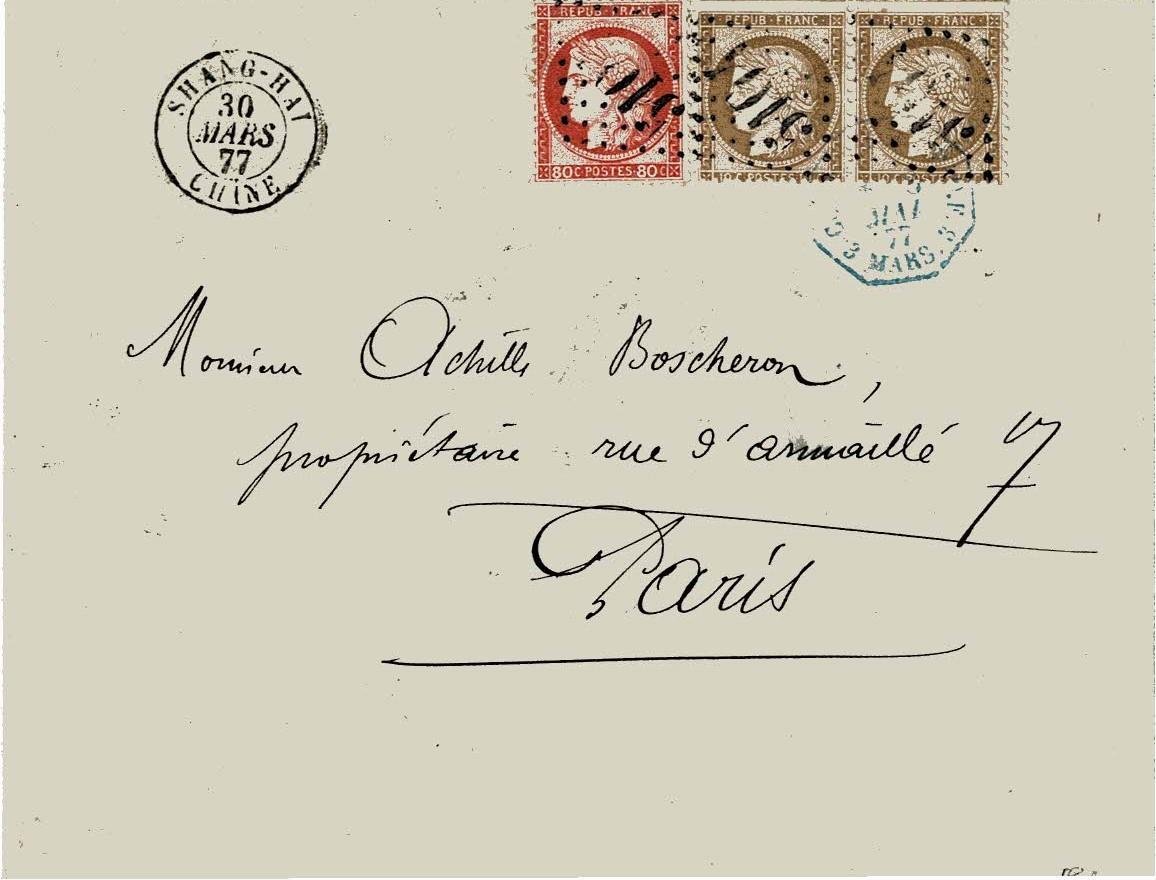 SHANG-HAI
30
MARS
77
CHINE
REPUB·FRANC·
80C·POSTES·80C
5104
REPUB·FRANC·
10·C·POSTES
5104
REPUB·FRANC·
5104
MAI
77
MARS.
Monsieur Achille Boscheron,
propriétaire rue d'armaillé 17
Paris